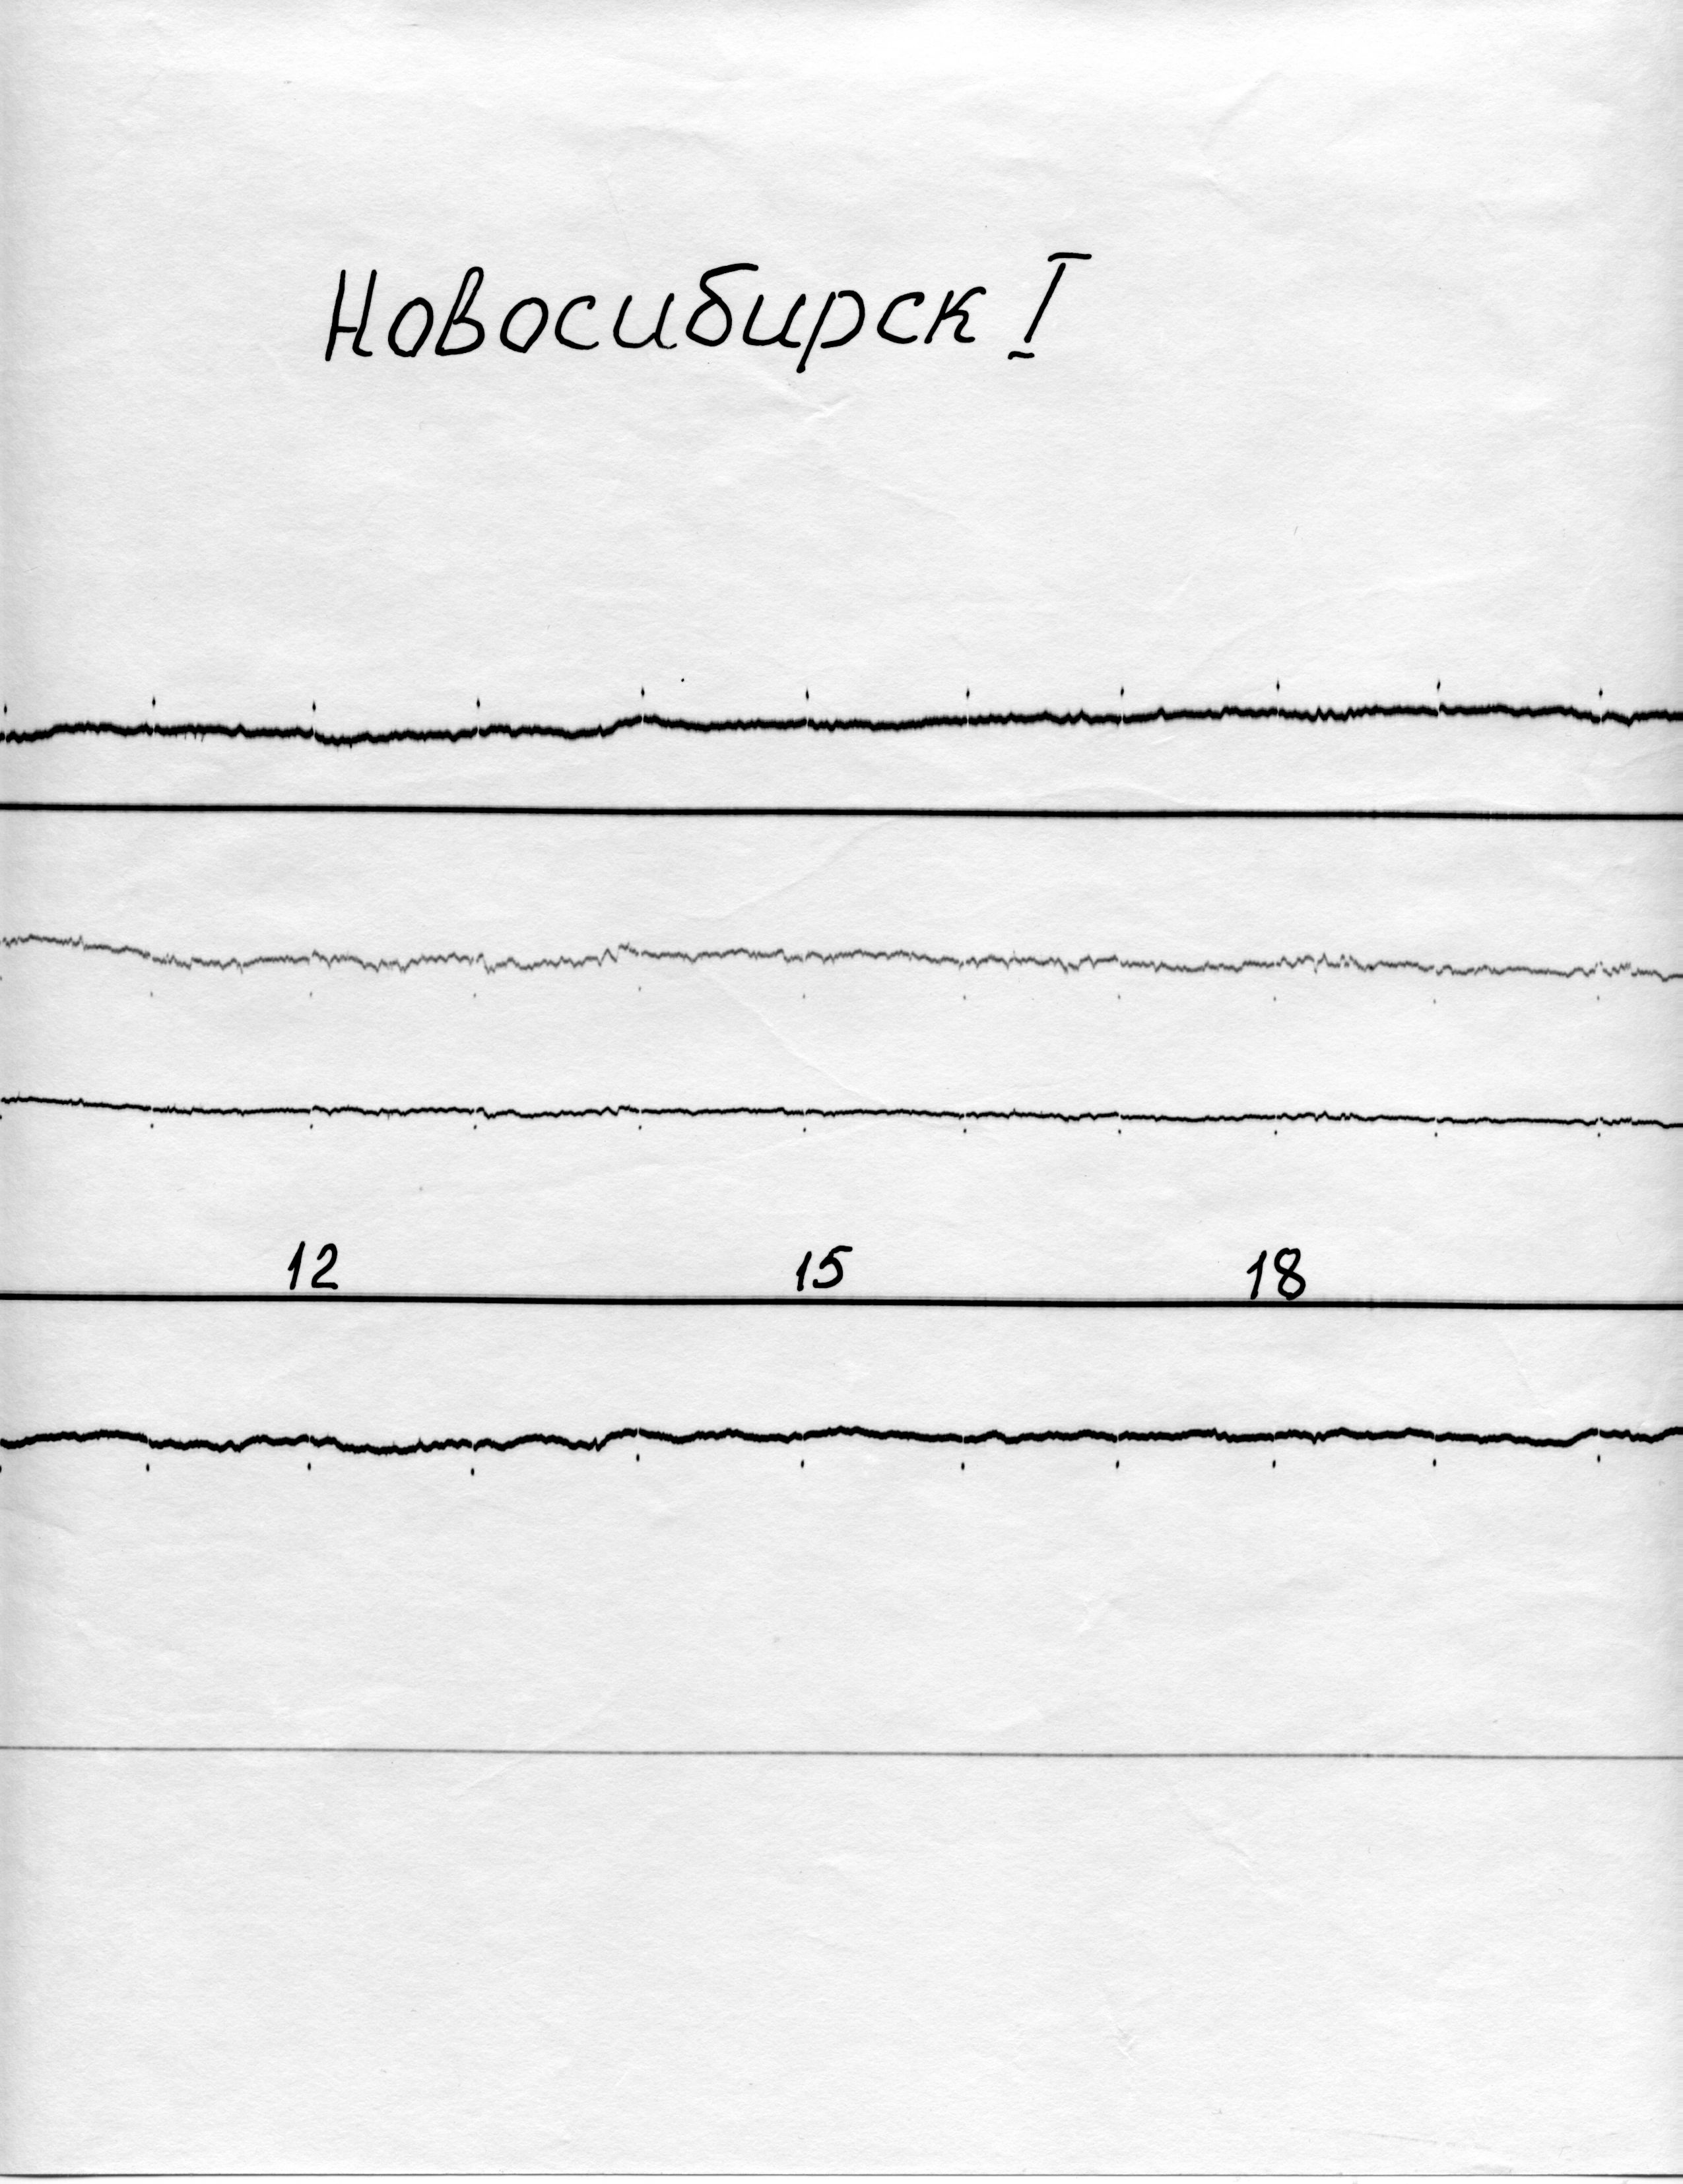 Новосибирск I
12 15 18